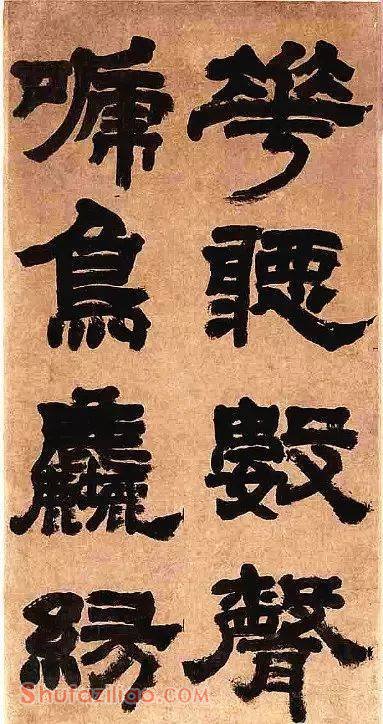 華聽數聲
嗁鳥麤緣
Shufaziliao.com